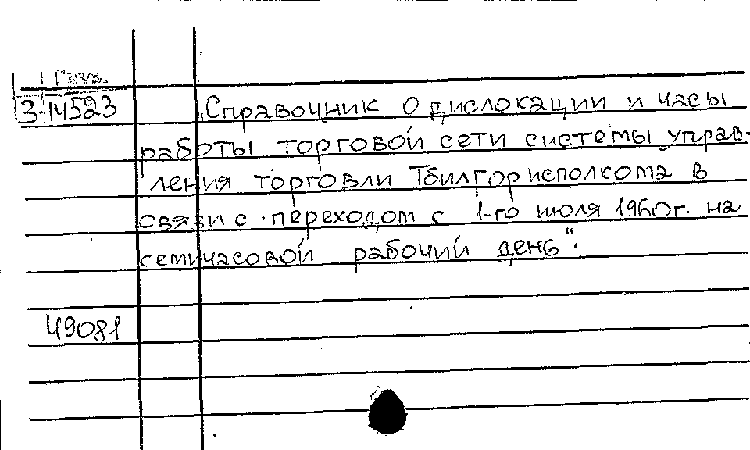 3-14523 „Справочник о дислокации и часы
работы торговой сети системы управ-
ления торговли Тбилгорисполкома в
связи с переходом с 1-го июля 1960г. на
семичасовой рабочий день“.
49081